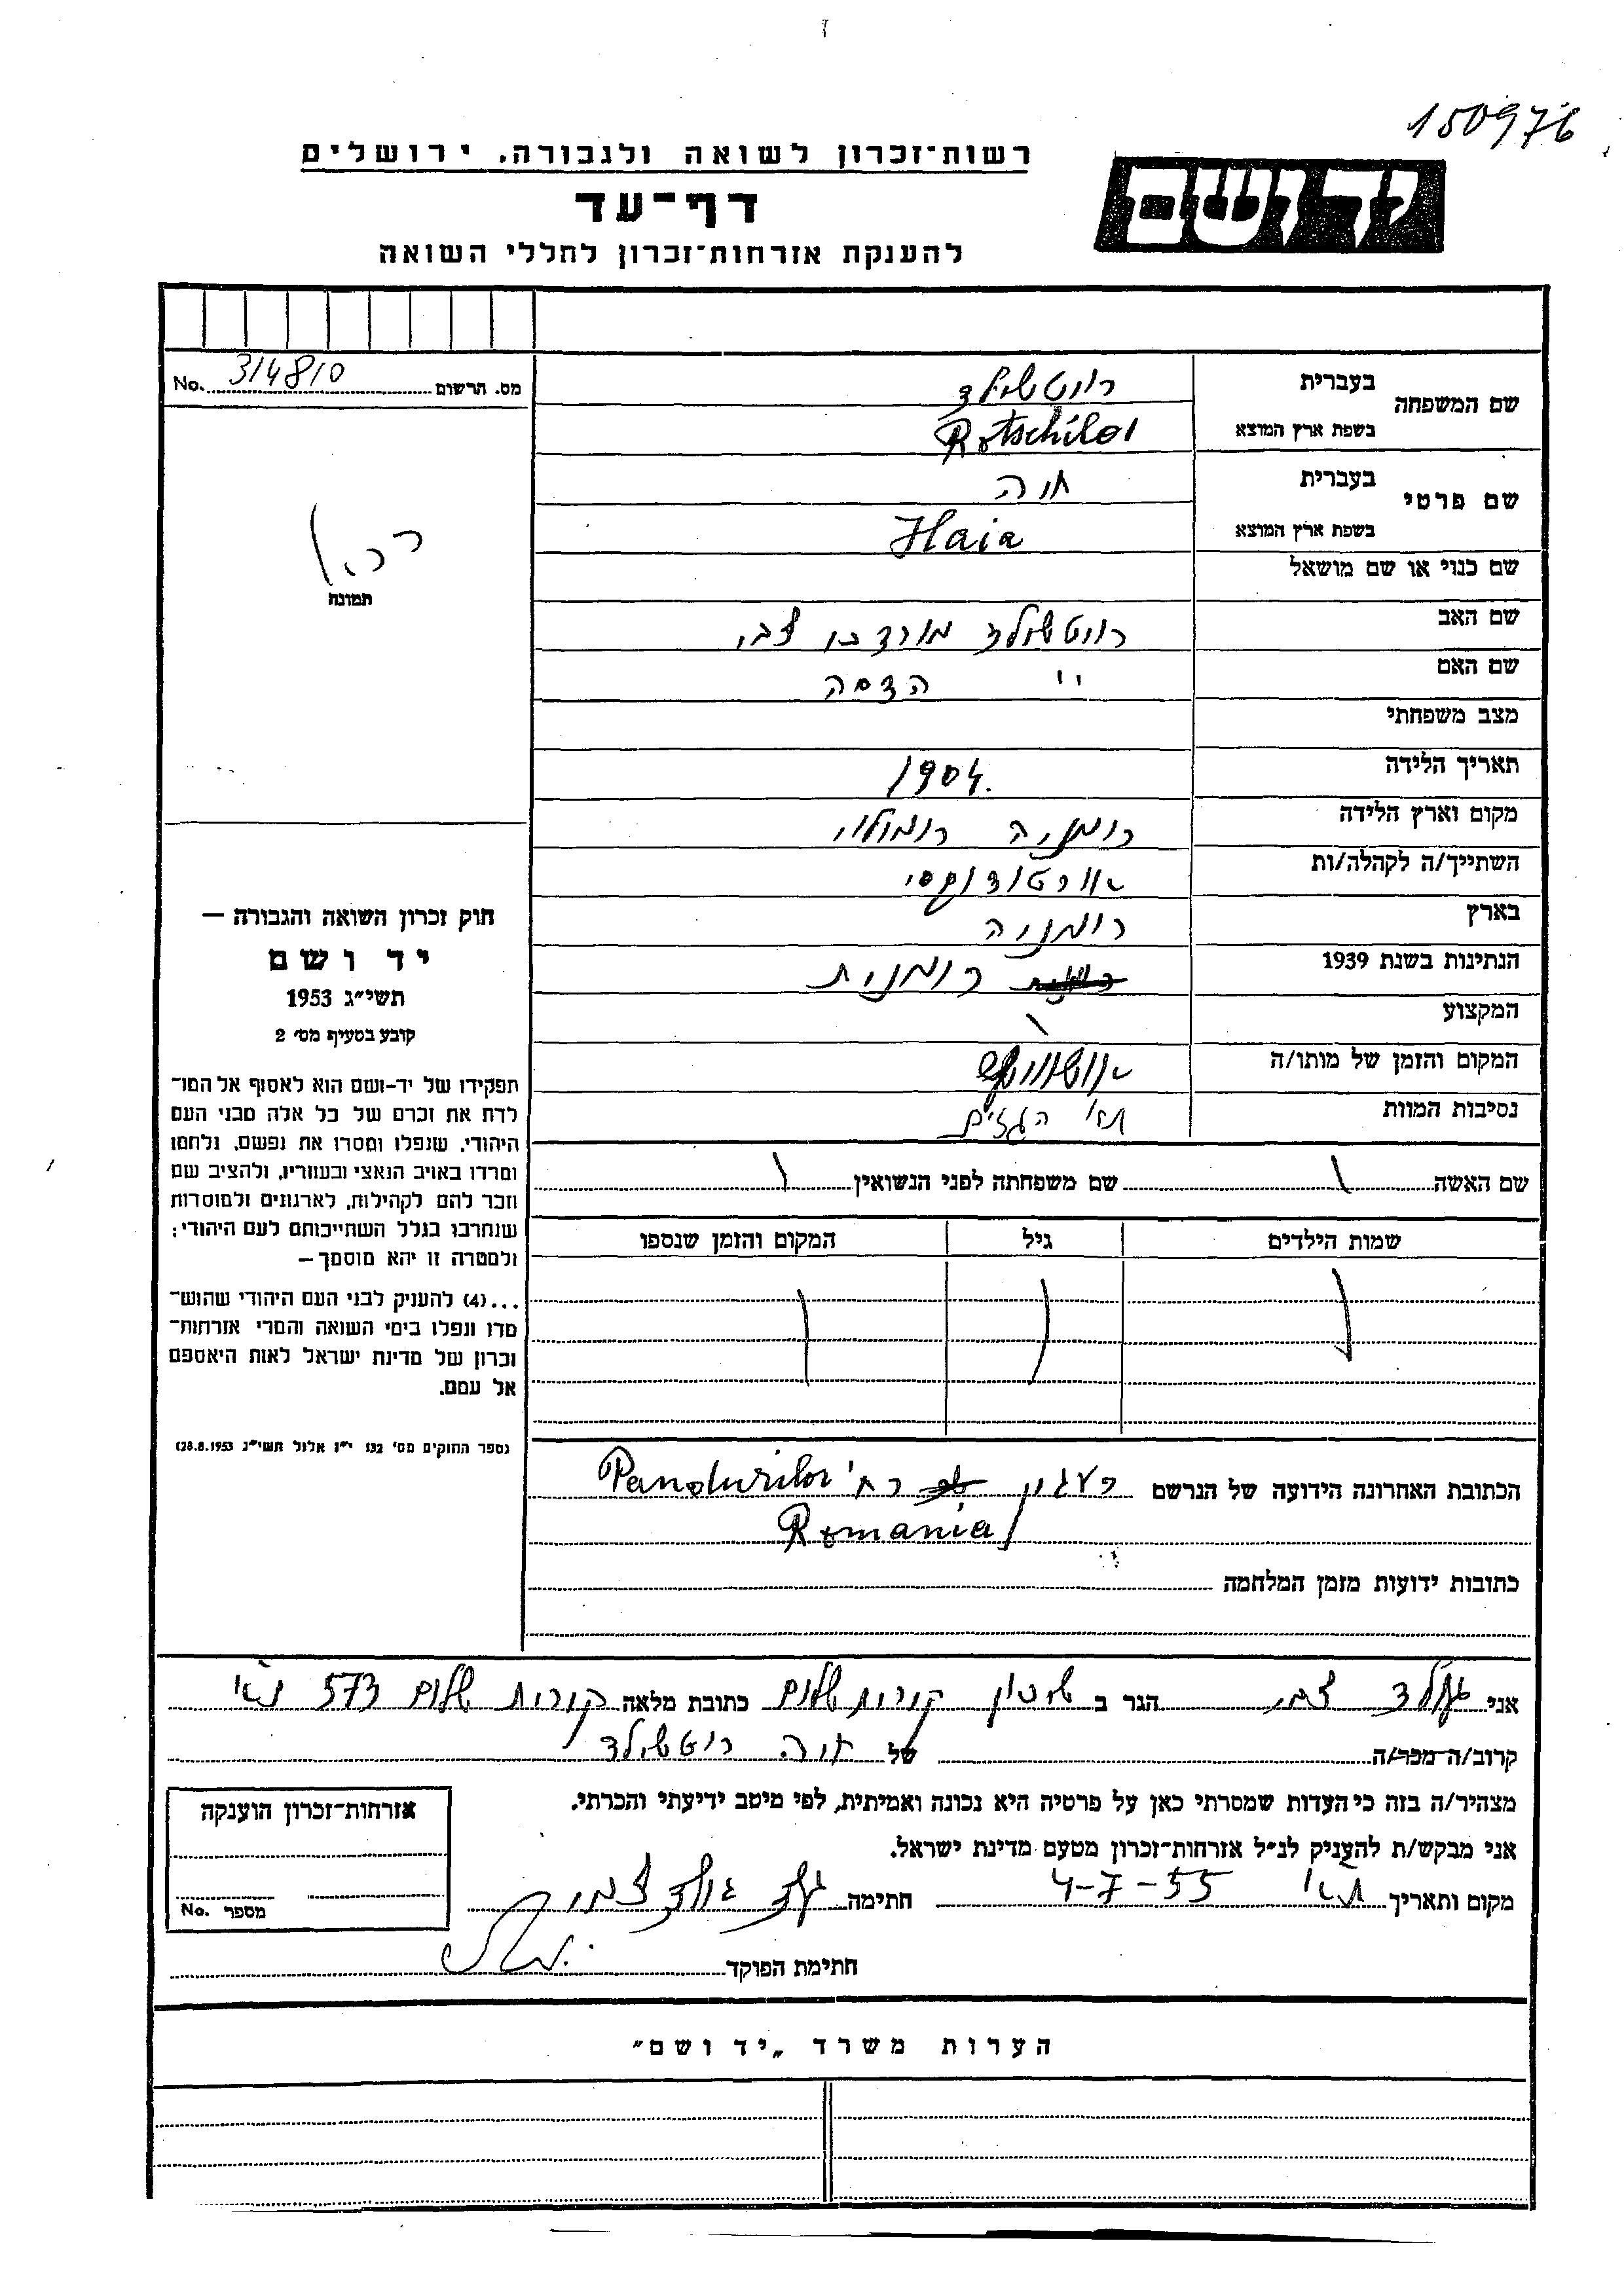 150976
רשות־זכרון לשואה ולגבורה, ירושלים
יד ושם
דף־עד
להענקת אזרחות־זכרון לחללי השואה
מס. הרשום 314810 No.
שם המשפחה
בעברית רוטשילד
בשפת ארץ המוצא Rotschild
שם פרטי
בעברית חיה
בשפת ארץ המוצא Haia
שם כנוי או שם מושאל
שם האב רוטשילד מורדכי צבי
שם האם " הדסה
מצב משפחתי
תאריך הלידה 1904.
מקום וארץ הלידה רומניה
השתייך/ה לקהלה/ות אורטודוקסי
בארץ רומניה
הנתינות בשנת 1939 רומנית
המקצוע
המקום והזמן של מותו/ה אושוויץ
נסיבות המוות תאי הגזים
שם האשה שם משפחתה לפני הנשואין
שמות הילדים גיל המקום והזמן שנספו
תמונה
חוק זכרון השואה והגבורה —
יד ושם
תשי״ג 1953
קובע בסעיף מס׳ 2
תפקידו של יד-ושם הוא לאסוף אל המו־
לדת את זכרם של כל אלה מבני העם
היהודי, שנפלו ומסרו את נפשם, נלחמו
ומרדו באויב הנאצי ובעוזריו, ולהציב שם
וזכר להם לקהילות, לארגונים ולמוסדות
שנחרבו בגלל השתייכותם לעם היהודי;
ולמטרה זו יהא מוסמך —
...(4) להעניק לבני העם היהודי שהוש־
מדו ונפלו בימי השואה והמרי אזרחות־
זכרון של מדינת ישראל לאות היאספם
אל עמם.
(ספר החוקים מס׳ 132 י״ז אלול תשי״ג 28.8.1953)
הכתובת האחרונה הידועה של הנרשם רח' Pandurilor
Romania
כתובות ידועות מזמן המלחמה
אני צבי הגר ב שיכון קורת שלום כתובת מלאה קורת שלום 573
קרוב/ה מכר/ה של חיה רוטשילד
מצהיר/ה בזה כי העדות שמסרתי כאן על פרטיה היא נכונה ואמיתית, לפי מיטב ידיעתי והכרתי.
אני מבקש/ת להעניק לנ״ל אזרחות־זכרון מטעם מדינת ישראל.
מקום ותאריך 4-7-55 חתימה
חתימת הפוקד
אזרחות־זכרון הוענקה
מספר No.
הערות משרד „יד ושם"